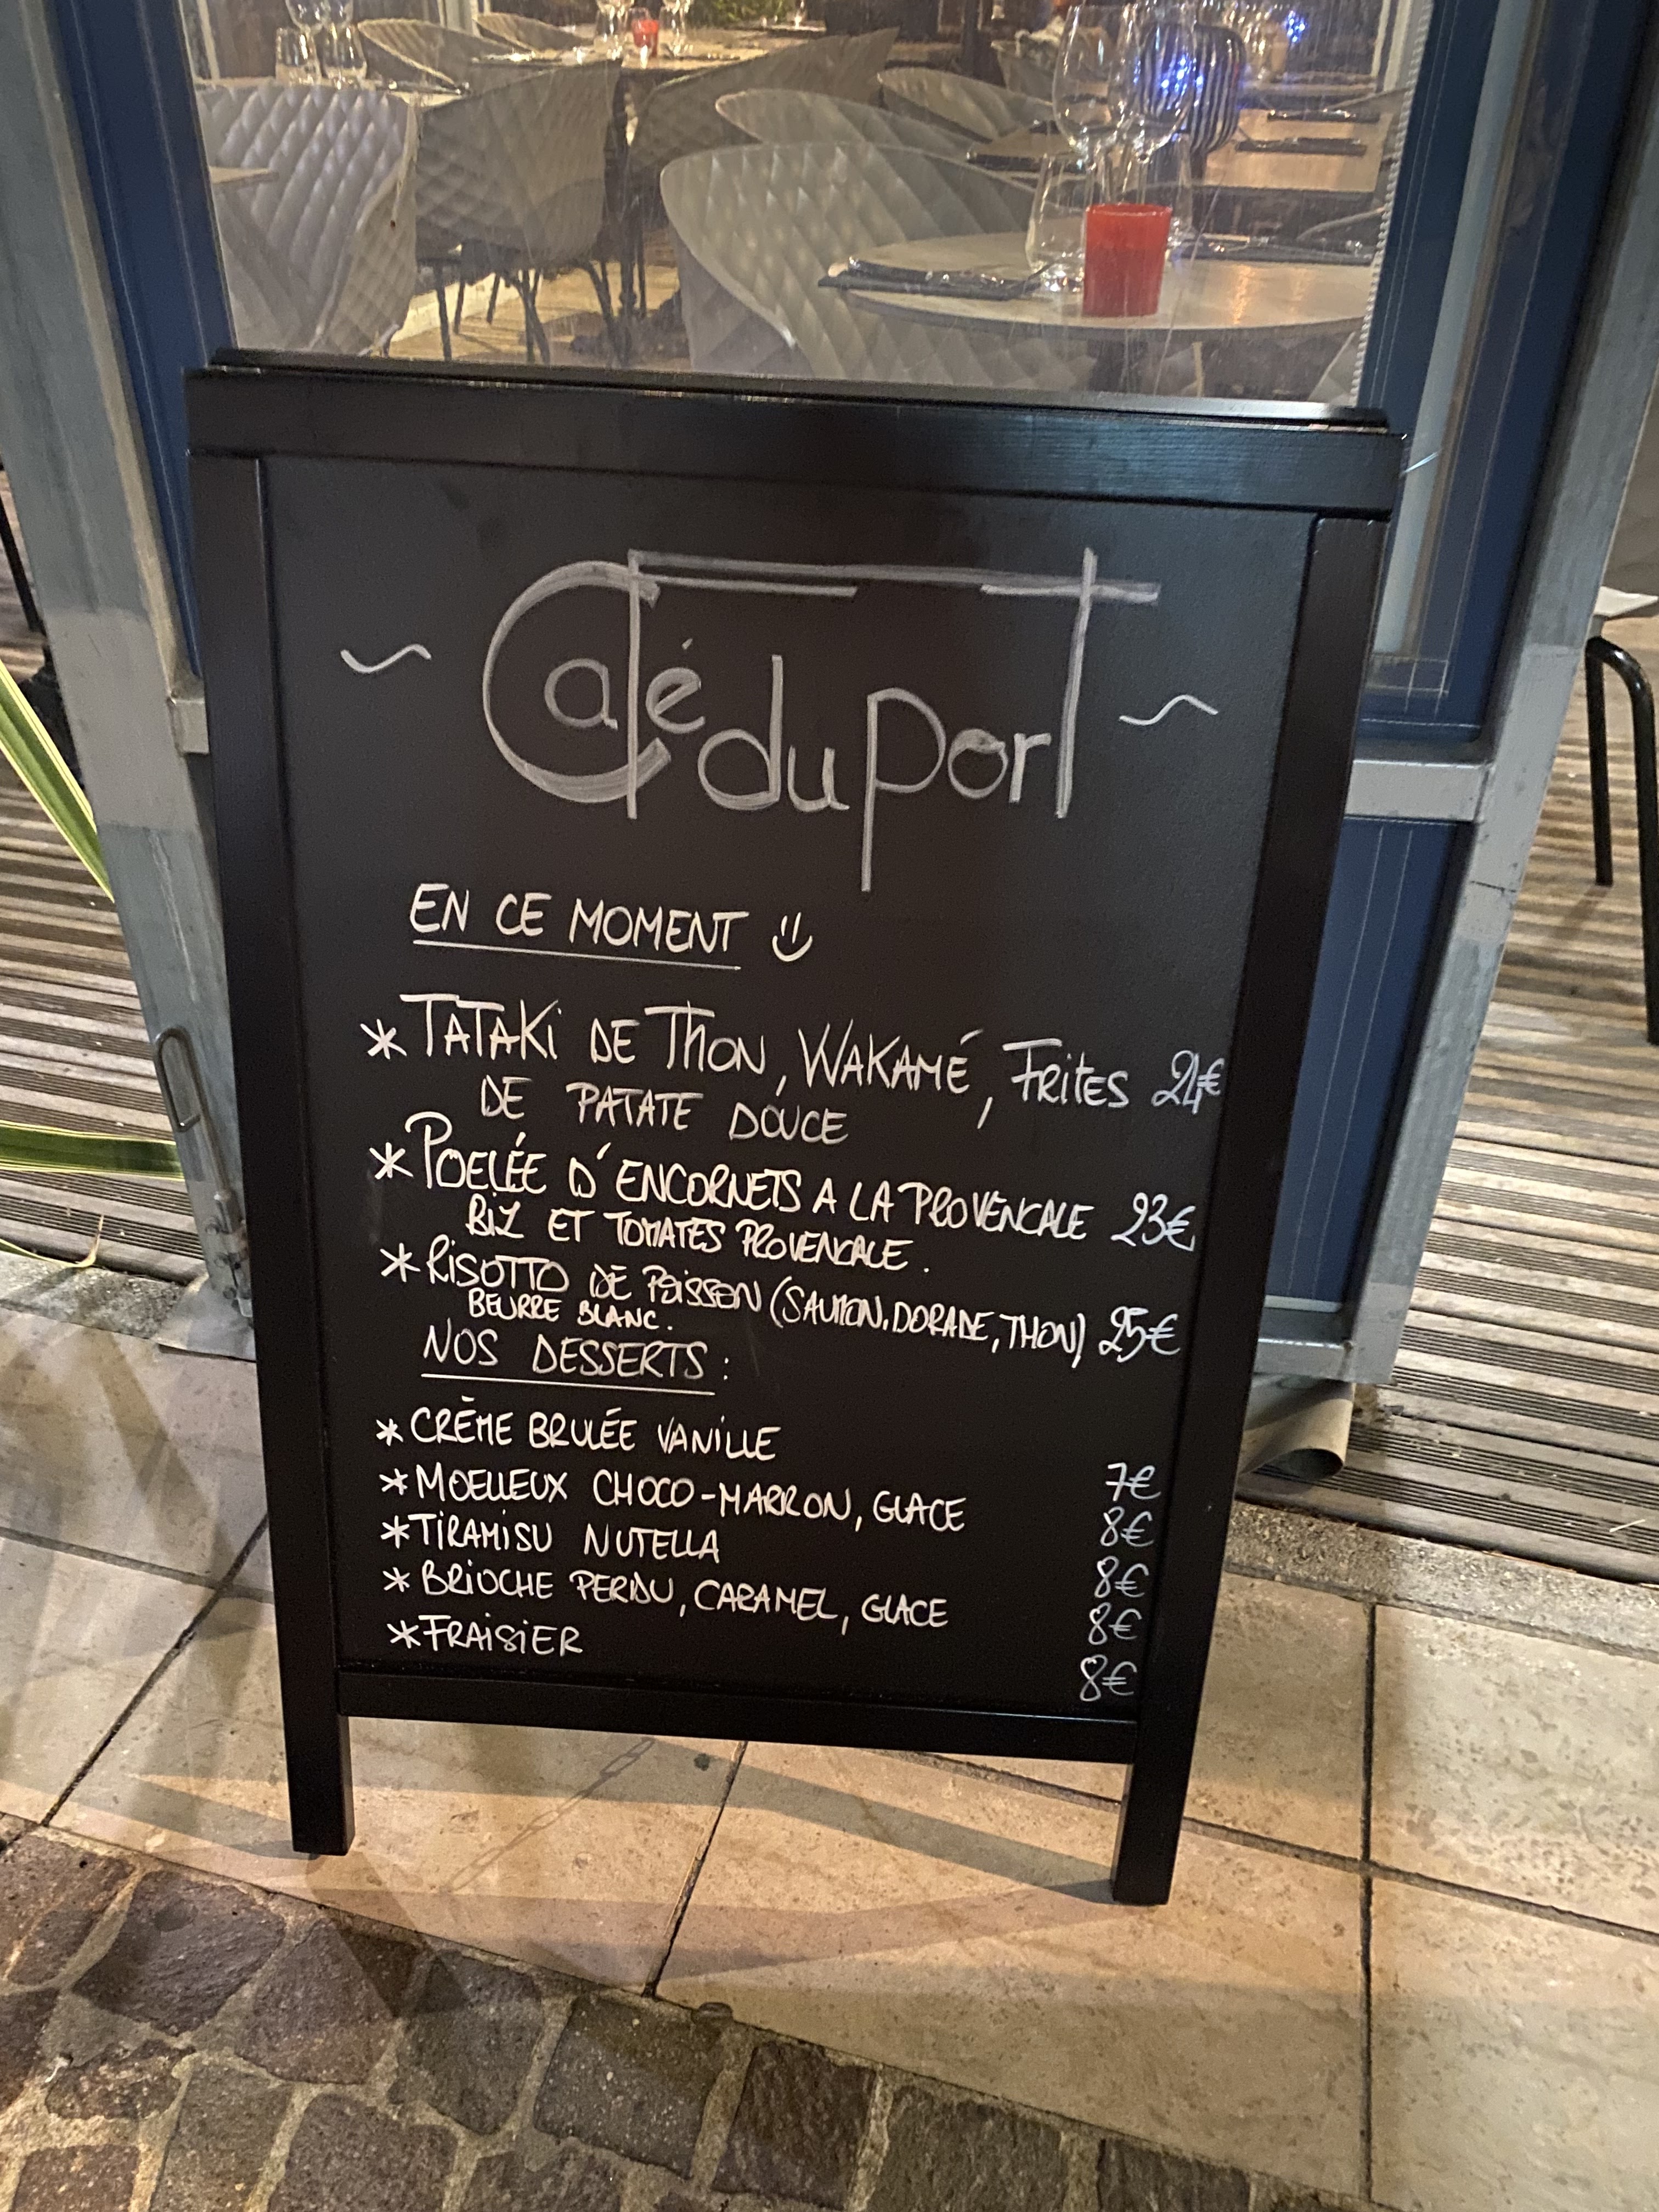 ~ Café du Port ~
EN CE MOMENT
* TATAKI DE THON, WAKAMÉ, FRITES 24€
DE PATATE DOUCE
* POELÉE D'ENCORNETS A LA PROVENCALE 23€
RIZ ET TOMATES PROVENCALE.
* RISOTTO DE POISSON (SAUMON, DORADE, THON) 25€
BEURRE BLANC.
NOS DESSERTS :
* CRÈME BRULÉE VANILLE 7€
* MOELLEUX CHOCO-MARRON, GLACE 8€
* TIRAMISU NUTELLA 8€
* BRIOCHE PERDU, CARAMEL, GLACE 8€
* FRAISIER 8€